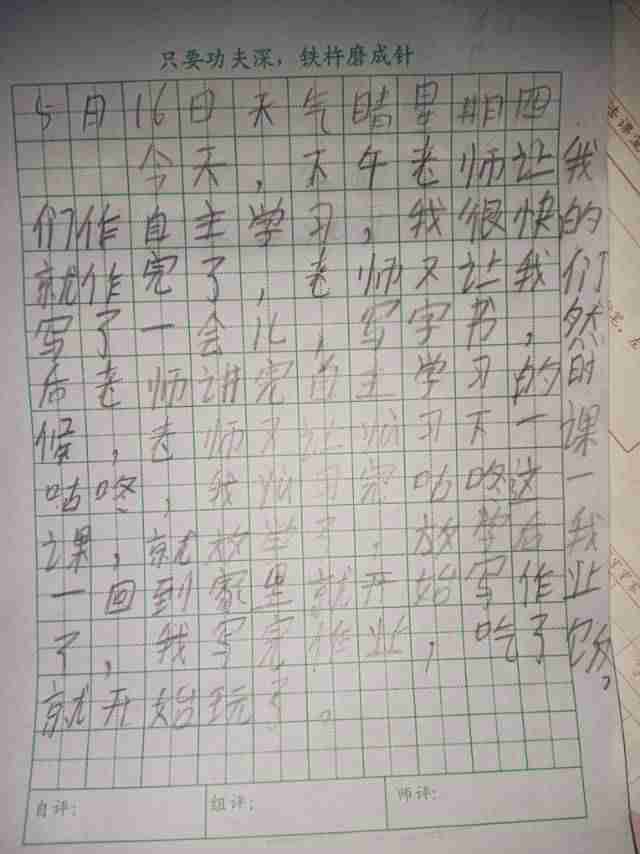 只要功夫深，铁杵磨成针
5月16日天气晴星期四
今天，下午老师让我
们作自主学习，我很快的
就作完了，老师又让我们
写了一会儿，写字书，然
后老师讲完自主学习的时
候，老师又让预习下一课
咕咚，我预习完咕咚这一
课，就放学了，放学后我
一回到家里就开始写作业
了，我写完作业，吃了饭，
就开始玩了。
自评：
组评：
师评：